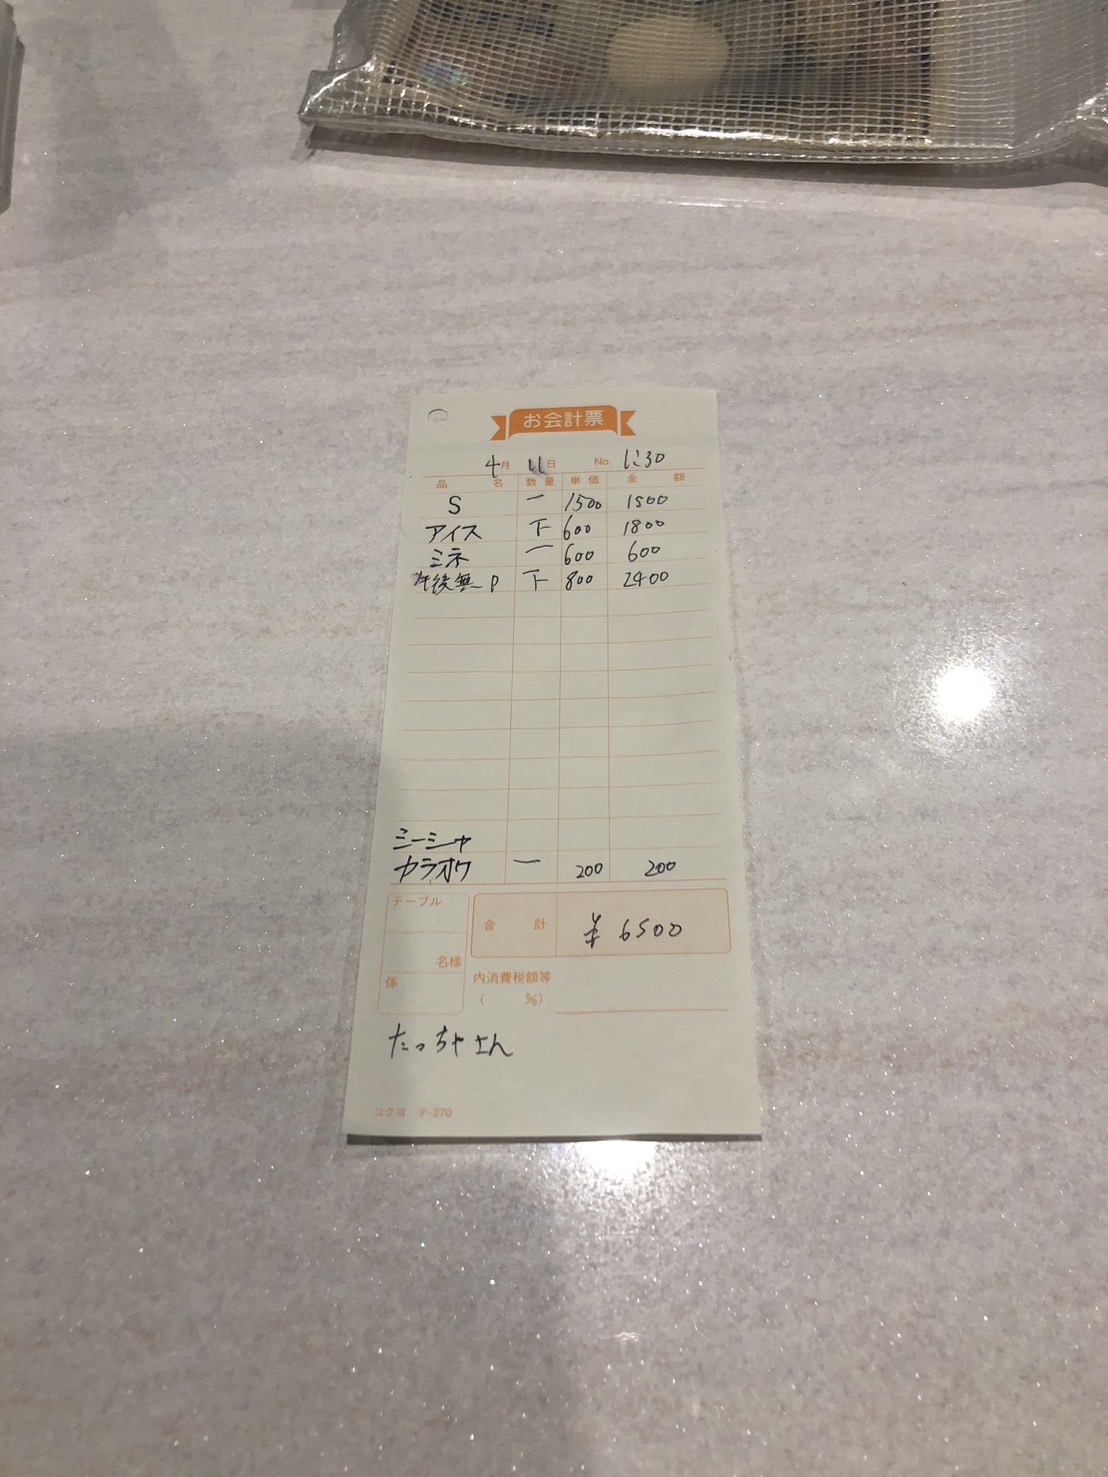 お会計票
4月 11日 No. 1:30
品名 数量 単価 金額
S 一 1500 1500
アイス 下 600 1800
ミネ 一 600 600
午後無P 下 800 2400
ミーシャ
カラオケ 一 200 200
テーブル
合計 ¥6500
名様
係
内消費税額等
( %)
たっちゃさん
コクヨ テ-270